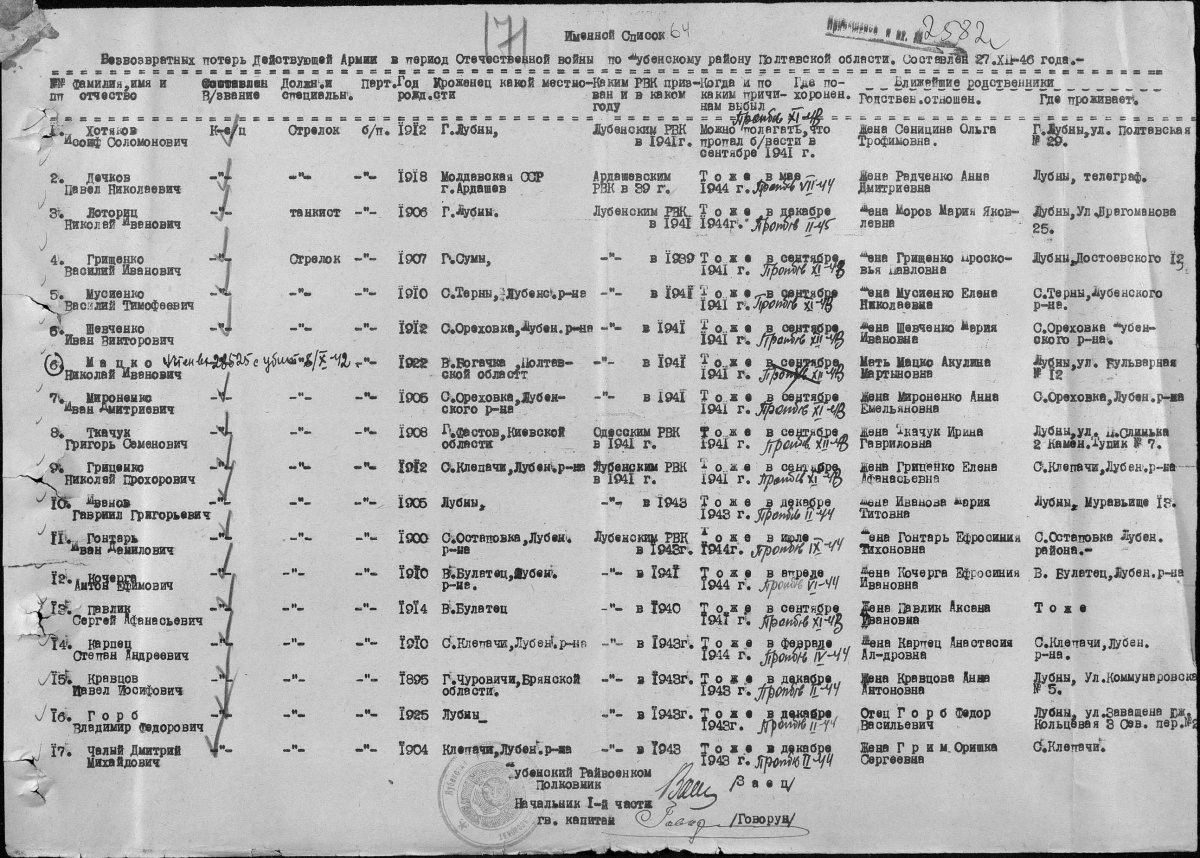 171
Именной Список 64
2582
Безвозвратных потерь Действующей Армии в период Отечественной войны по Лубенскому району Полтавской области. Составлен 27.XII-46 года.-
№№ фамилия,имя и В/звание Должн.и Парт. Год Уроженец какой местно- Каким РВК приз- Когда и по Где по- Ближайшие родственники
пп отчество специальн. рожд. сти ван и в каком каким причи- хоронен. Родствен.отношен. Где проживает.
году нам выбыл
Пропав XI-43
1. Хотяков К-а/п Стрелок б/п. 1912 Г.Лубны, Лубенским РВК Можно полагать,что Жена Сеницина Ольга Г.Лубны,ул. Полтавская
Иосиф Соломонович в 1941г. пропал б/вести в Трофимовна. № 29.
сентябре 1941 г.
2. Дечков -"- -"- -"- 1918 Молдавская ССР Ардашевским Т о ж е в мае Жена Радченко Анна Лубны, телеграф.
Павел Николаевич г.Ардашев РВК в 39 г. 1944 г. Пропав VII-44 Дмитриевна
3. Лоториц -"- танкист -"- 1906 Г.Лубны. Лубенским РВК Т о ж е в декабре Жена Моров Мария Яков- Лубны,Ул.Драгоманова
Николай Иванович в 1941 1944г. Пропав II-45 левна 25.
4. Грищенко -"- Стрелок -"- 1907 Г.Сумы, -"- в 1939 Т о ж е в сентябре Жена Грищенко Проско- Лубны,Достоевского 12,
Василий Иванович 1941 г. Пропав XI-43 вья Павловна
5. Мусиенко -"- -"- -"- 1910 С.Терны,Лубенс.р-на -"- в 1941 Т о ж е в сентябре Жена Мусиенко Елена С.Терны,Лубенского
Василий Тимофеевич 1941 г. Пропав XI-43 Николаевна р-на.
6. Шевченко -"- -"- -"- 1912 С.Ореховка,Лубен.р-на -"- в 1941 Т о ж е в сентябре Жена Шевченко Мария С.Ореховка Лубен-
Иван Викторович 1941 г. Пропав XII-43 Ивановна ского р-на.
6. М а ц к о 28525 с -"- 1922 В.Богачка,Полтав- -"- в 1941 Т о ж е в сентябре Мать Мацко Акулина Лубны,ул.Бульварная
Николай Иванович ской областт 1941 г. Пропав XII-43 Мартыновна № 12
7. Мироненко -"- -"- -"- 1905 С.Ореховка,Лубен- -"- в 1941 Т о ж е в сентябре Жена Мироненко Анна С.Ореховка,Лубен.р-на
Иван Дмитриевич ского р-на 1941 г. Пропав XI-43 Емельяновна
8. Ткачук -"- -"- -"- 1908 Г.Фастов,Киевской Одесским РВК Т о ж е в сентябре Жена Ткачук Ирина Лубны,ул.
Григорь Семенович области в 1941 г. 1941 г. Пропав XII-43 Гавриловна 2 Камен.Тупик № 7.
9. Гриценко -"- -"- -"- 1912 С.Клепачи,Лубен.р-на Лубенским РВК Т о ж е в сентябре Жена Гриценко Елена С.Клепачи,Лубен.р-на
Николай Прохорович в 1941 г. 1941 г. Пропав XI-43 Афанасьевна
10. Иванов -"- -"- -"- 1905 Лубны, -"- в 1943 Т о ж е в декабре Жена Иванова Мария Лубны, Муравьище 13.
Гавриил Григорьевич 1943 г. Пропав II-44 Титовна
11. Гонтарь -"- -"- -"- 1900 С.Остаповка,Лубен. Лубенским РВК Т о же в июле Жена Гонтарь Ефросиния С.Остаповка Лубен.
Иван Демилович р-на в 1943г. 1944г. Пропав IX-44 Тихоновна района.-
12. Кочерга -"- -"- -"- 1910 В.Булатец,Лубен. -"- в 1941 Т о ж е в апреле Жена Кочерга Ефросиния В. Булатец,Лубен.р-на
Антон Ефимович р-на. 1944 г. Пропав VI-44 Ивановна
13. Павлик -"- -"- -"- 1914 В.Булатец -"- в 1940 Т о ж е в сентябре Жена Павлик Аксана Т о ж е
Сергей Афанасьевич 1941 г. Пропав XI-43 Ивановна
14. Карпец -"- -"- -"- 1910 С.Клепачи,Лубен.р-на -"- в 1943г. Т о ж е в феврале Жена Карпец Анастасия С.Клепачи,Лубен.
Степан Андреевич 1944 г. Пропав IV-44 Ал-дровна р-на.
15. Кравцов -"- -"- -"- 1895 Г.Чуровичи,Брянской -"- в 1943г. Т о ж е в декабре Жена Кравцова Анна Лубны, Ул.Коммунаровска
Павел Иосифович области. 1943 г. Пропав II-44 Антоновна № 5.
16. Г о р б -"- -"- -"- 1925 Лубны -"- в 1943г. Т о ж е в декабре Отец Г о р б Федор Лубны, ул.Завашена Еж.
Владимир Федорович 1943г. Пропав II-44 Васильевич Кольцевая 3 Сев. пер.№2
17. Чалый Дмитрий -"- -"- -"- 1904 Клепачи,Лубен.р-на -"- в 1943 Т о ж е в декабре Жена Г р и м Оришка С.Клепачи.
Михайдович 1943 г. Пропав II-44 Сергеевна
Лубенский Райвоенком
Полковник /З а е ц/
Начальник 1-й части
гв. капитан /Говорун/